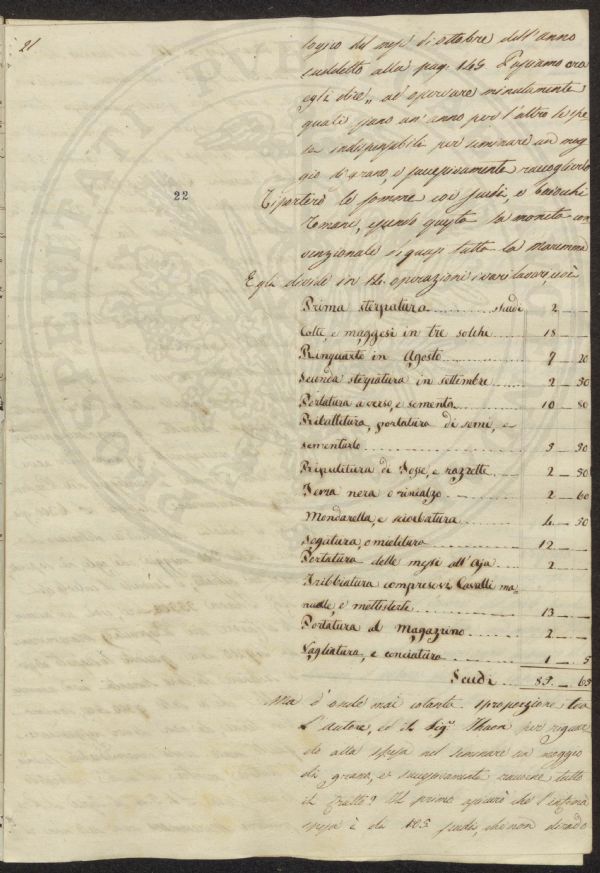 21
logio del mese di ottobre dell'anno
suddetto alla pag. 145 Passiamo ora
egli dice,, ad osservare minutamente
quali siano un' anno per l'altro le spe
se indispensabili per seminare un mog
gio di grano, e successivamente raccoglierlo
22
Riporterò le somme coi scudi, e baiocchi
Romani, essendo questa la moneta con
venzionale di quasi tutta la Maremma
Egli divide in 14 operazioni i vari lavori, cioè
Prima sterpatura ......... scudi 2 —
Colti, e maggesi in tre solchi 18 —
Rinquarto in Agosto ......... 7 — 20
Seconda sterpatura in settembre 2 — 30
Portatura a verso, e sementa ......... 10 — 80
Ribattitura, portatura di seme, e
sementarlo ......... 3 — 30
Ripulitura di Fosse, e razzette ..... 2 — 50
Terra nera o rincalzo ......... 2 — 60
Mondarella, e scierbatura ......... 4 — 30
Segatura, o mietitura ......... 12 —
Portatura delle messe all'Aja ..... 2 —
Tribbiatura compresovi Cavalli ma
nuelle, e metterle ......... 13 —
Portatura al Magazzino ......... 2 —
Vagliatura, e conciatura ......... 1 — 5
Scudi .. 83. — 65
Ma d'onde mai cotanta sproporzione tra
l'autore, ed il Sigr Thaon per riguar
do alla spesa nel seminare un moggio
di grano, e successivamente raccorne tutto
il frutto? Il primo che l'infima
spesa è di 105 scudi, che non